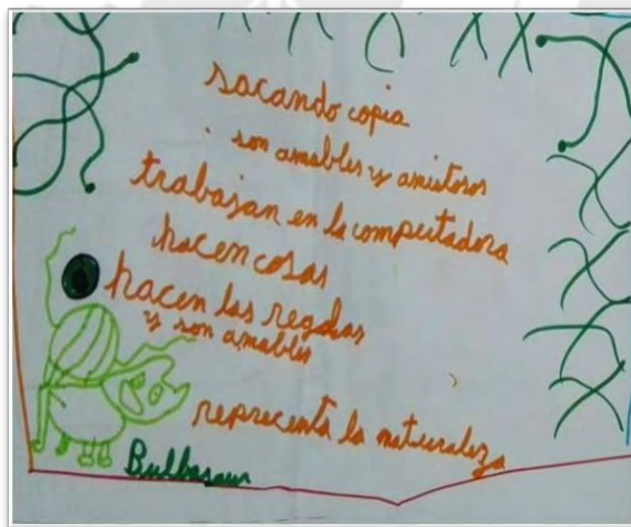 sacando copia
son amables y amistosos
trabajan en la computadora
hacen cosas
hacen las regalas
y son amables
reprecenta la naturaleza
Bulbasaur